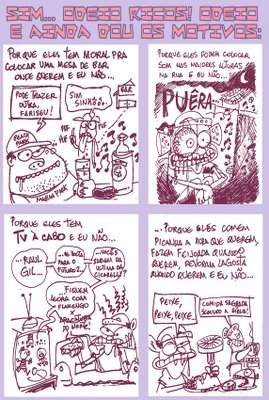 SIM... ODEIO RICOS! ODEIO
E AINDA DOU OS MOTIVOS:
PORQUE ELES TEM MORAL PRA
COLOCAR UMA MESA DE BAR
ONDE QUEREM E EU NÃO...
PODE TRAZER
OUTRA,
FARISEU!
SIM
SINHÔ...
BAR
PUF
PUF
PORQUE ELES PODEM COLOCAR
SOM NAS MAIORES ALTURAS
NA RUA E EU NÃO...
PUÊRA
PORQUE ELES TEM
TV À CABO E EU NÃO...
...RAUL
GIL...
...DE VOLTA
PARA O
FUTURO 2...
FIQUEM
AGORA COM
FLAMENGO
X
DO NORTE
...PORQUE ELES COMEM
PICANHA A HORA QUE QUEREM,
FAZEM FEIJOADA QUANDO
QUEREM, DEVORAM LAGOSTA
QUANDO QUEREM E EU NÃO...
PEIXE,
PEIXE, PEIXE...
COMIDA SAGRADA
SEGUNDO A BÍBLIA!